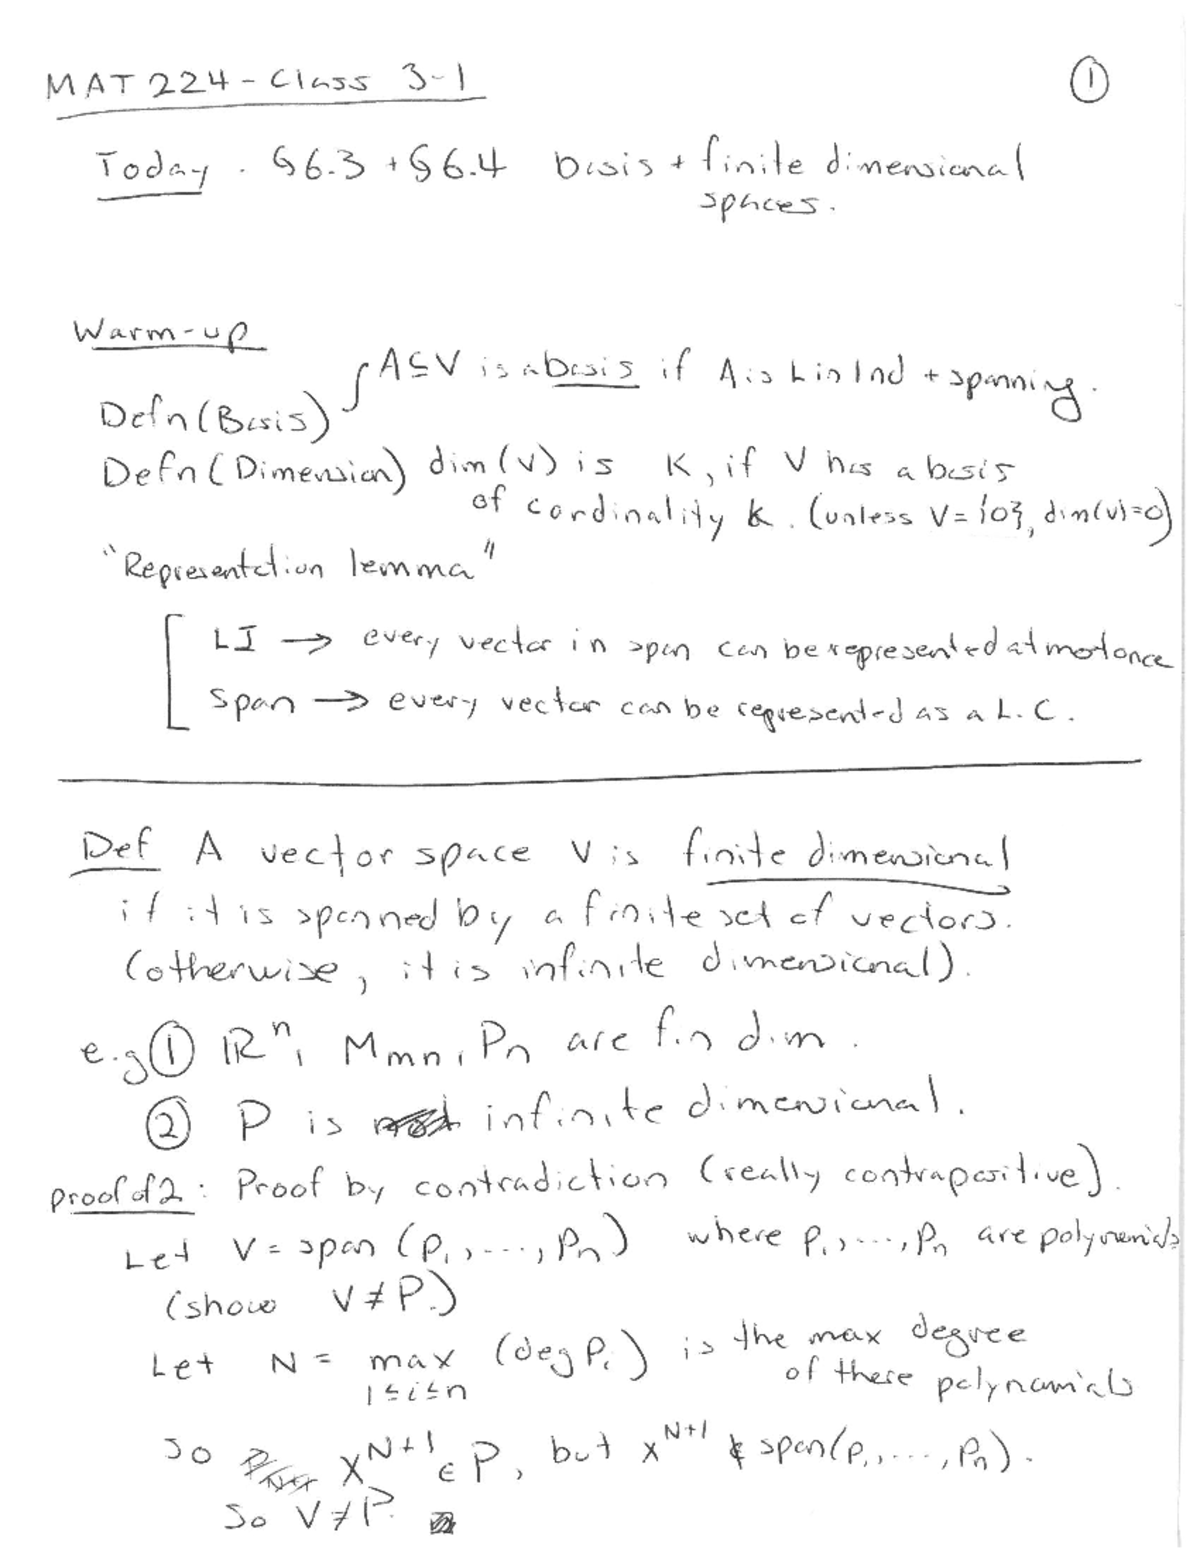 MAT 224 - Class 3-1
①
Today . §6.3 + §6.4 basis + finite dimensional
spaces.
Warm-up
Defn (Basis) { A ⊆ V is a basis if A is Lin Ind + spanning.
Defn (Dimension) dim (V) is K, if V has a basis
of cardinality k. (unless V = {0}, dim(V)=0)
"Representation lemma"
LI → every vector in span can be represented at most once
span → every vector can be represented as a L.C.
Def A vector space V is finite dimensional
if it is spanned by a finite set of vectors.
(otherwise, it is infinite dimensional).
e.g ① ℝⁿ, Mmn, Pn are fin dim.
② P is infinite dimensional.
proof of 2: Proof by contradiction (really contrapositive).
Let V = span (p₁, ..., pₙ) where p₁, ..., pₙ are polynomials
(show V ≠ P.)
Let N = max (deg pᵢ) is the max degree
1≤i≤n of these polynomials
So x^{N+1} ∈ P, but x^{N+1} ∉ span(p₁, ..., pₙ).
So V ≠ P.